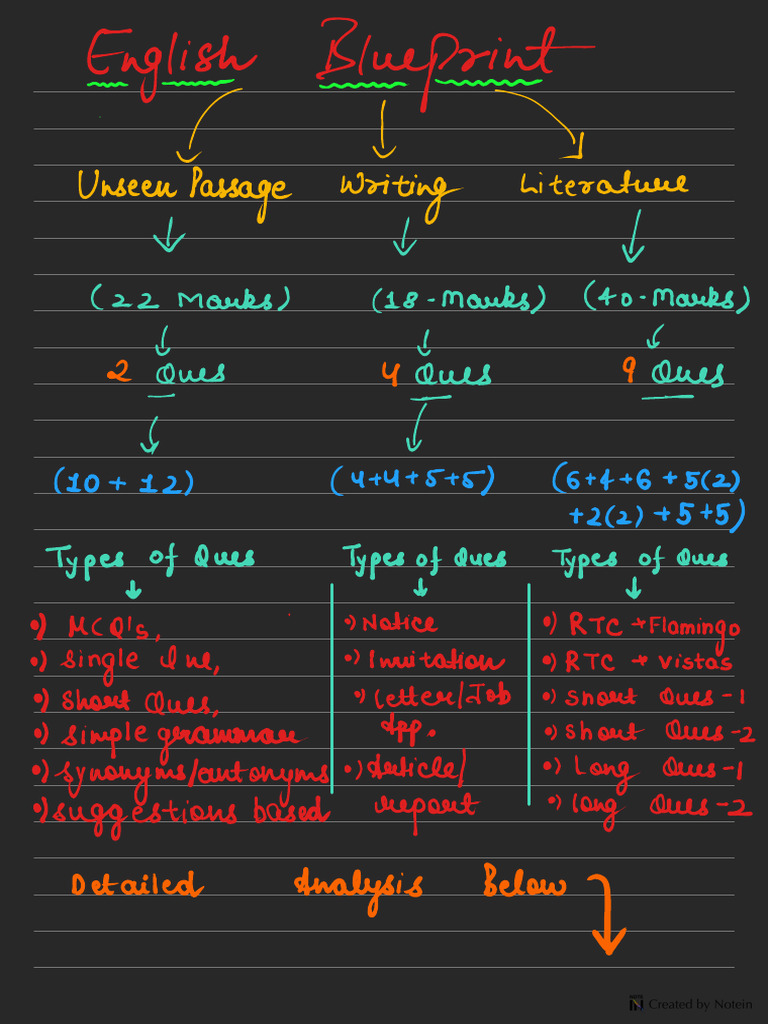 English Blueprint
Unseen Passage Writing Literature
(22 Marks) (18-Marks) (40-Marks)
2 Ques 4 Ques 9 Ques
(10+12) (4+4+5+5) (6+4+6+5(2)
+2(2)+5+5)
Types of Ques Types of Ques Types of Ques
•) MCQ's,
•) Single line,
•) Short Ques,
•) Simple grammar
•) Synonyms/antonyms
•) Suggestions based
•) Notice
•) Invitation
•) Letter/Job
App.
•) Article/
report
•) RTC → Flamingo
•) RTC → Vistas
•) Short Ques-1
•) Short Ques-2
•) Long Ques-1
•) Long Ques-2
Detailed Analysis Below
Created by Notein